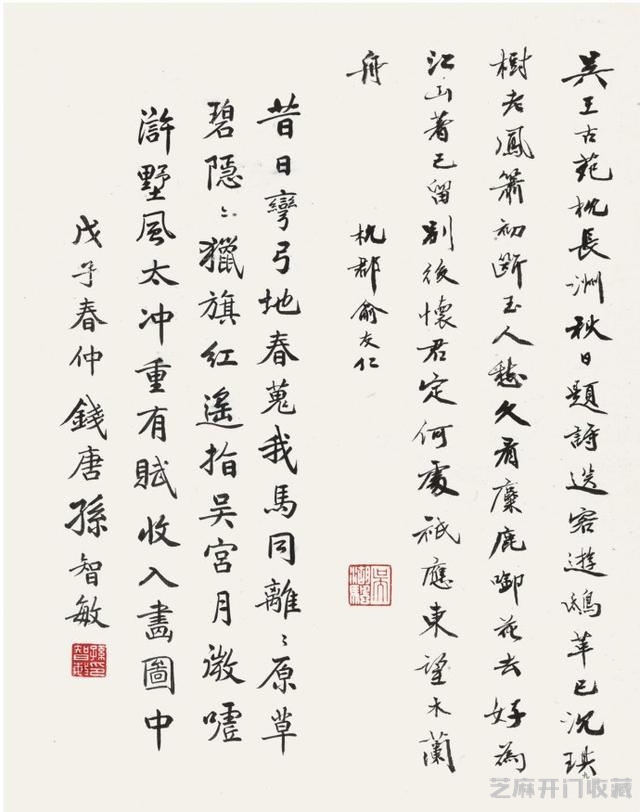 吳王古苑枕長洲秋日題詩送客遊鴟革已沉琪
樹老鳳簫初斷玉人愁久看麋鹿啣花去好為
江山著已留別後懷君定何處祇應東望木蘭
舟
杭郡俞友仁
昔日彎弓地春蒐我馬同離〻原草
碧隱〻獵旗紅遙指吳宮月微噓
滸墅風太冲重有賦收入畫圖中
戊子春仲錢唐孫智敏
芝麻开门收藏